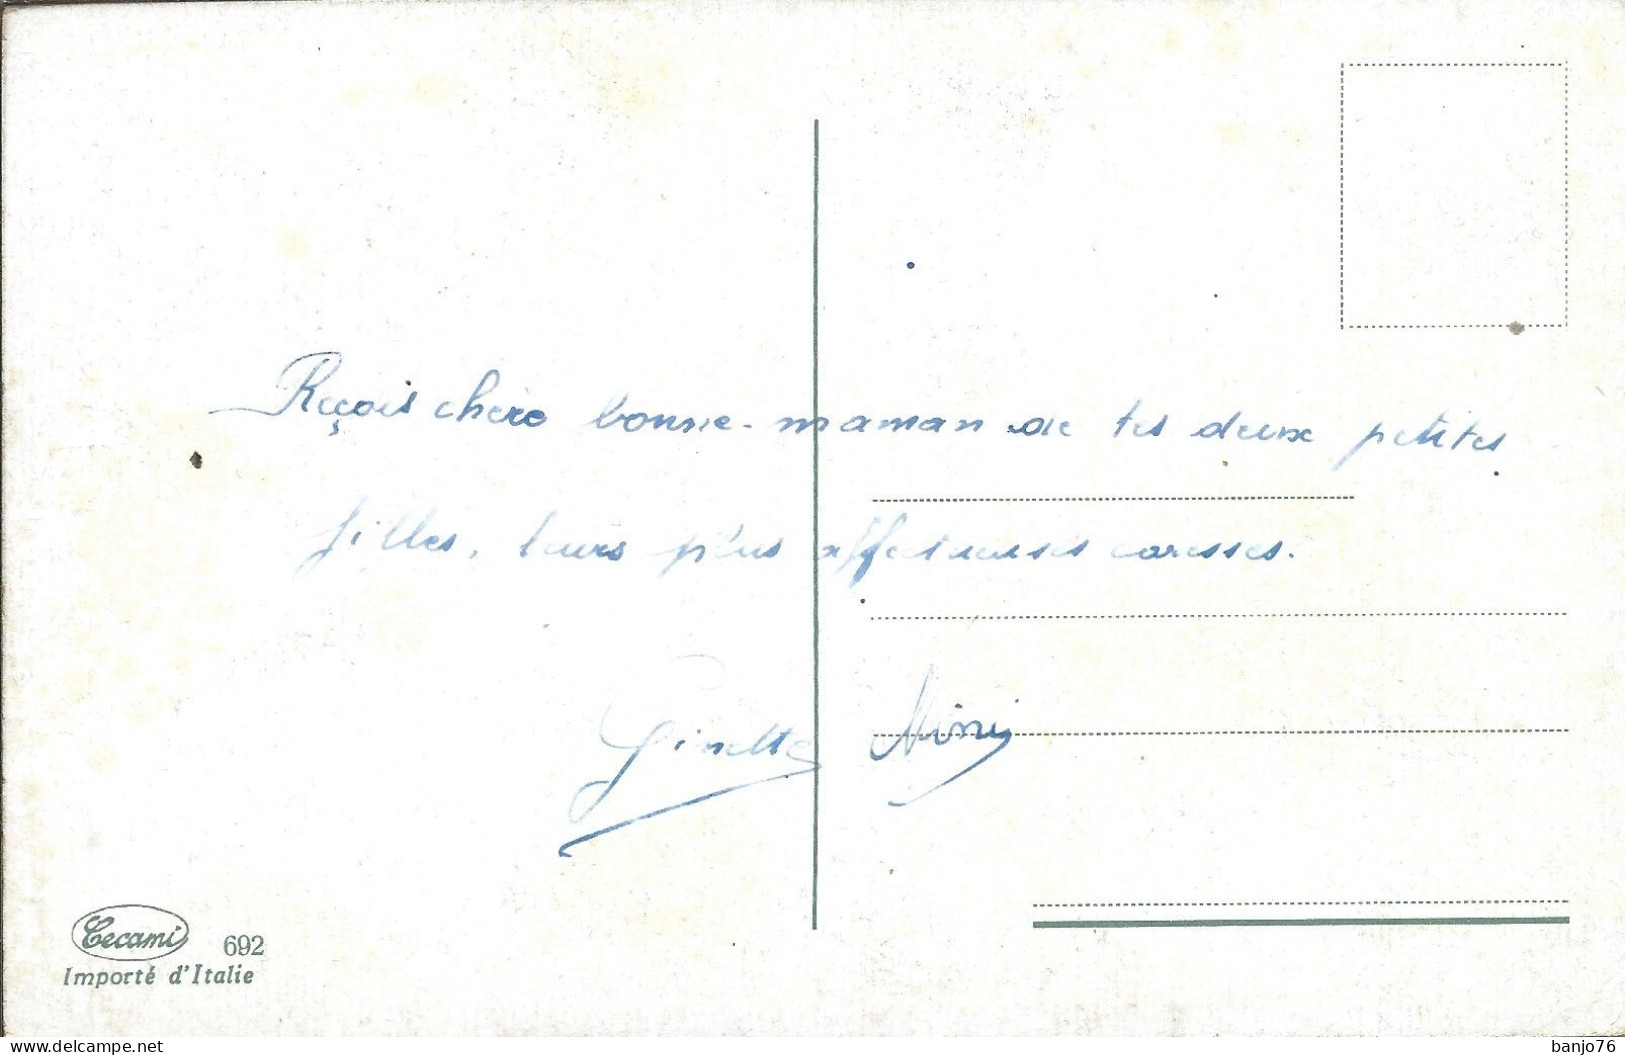 Reçois chère bonne-maman de tes deux petites
filles, leurs plus affectueuses caresses.
Ginette Mini
Cecami 692
Importé d'Italie
www.delcampe.net
banjo76